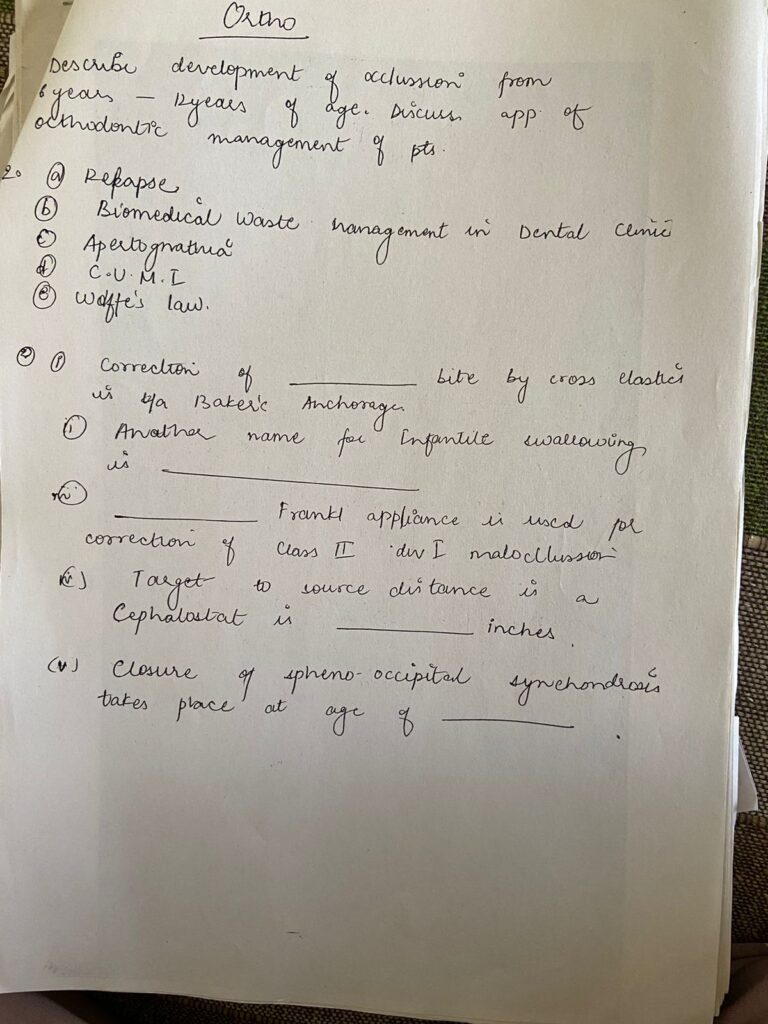 Ortho
Describe development of occlussion from
6 years – 12 years of age. Discuss app of
orthodontic management of pts.
2. (a) Relapse
(b) Biomedical waste management in Dental Clinic
(c) Apertognathia
(d) C.V.M.I
(e) Wolffe's law.
(i) Correction of ________ bite by cross elastics
is Baker's Anchorage.
Another name for Infantile swallowing
is ________
(iii) ________ Frankl appliance is used for
correction of Class II div I maloccllussion
(iv) Target to source distance is a
Cephalostat is ________ inches.
(v) Closure of spheno-occipital synchondrosis
takes place at age of ________.